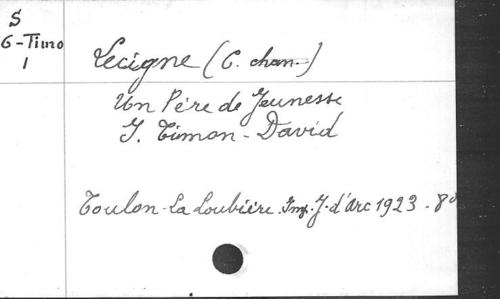 S
G-Timo
1
Lecigne (C. chan.)
Un Père de Jeunesse
J. Timon-David
Toulon-La Loubière. Imp. J. d'Arc 1923. 8º